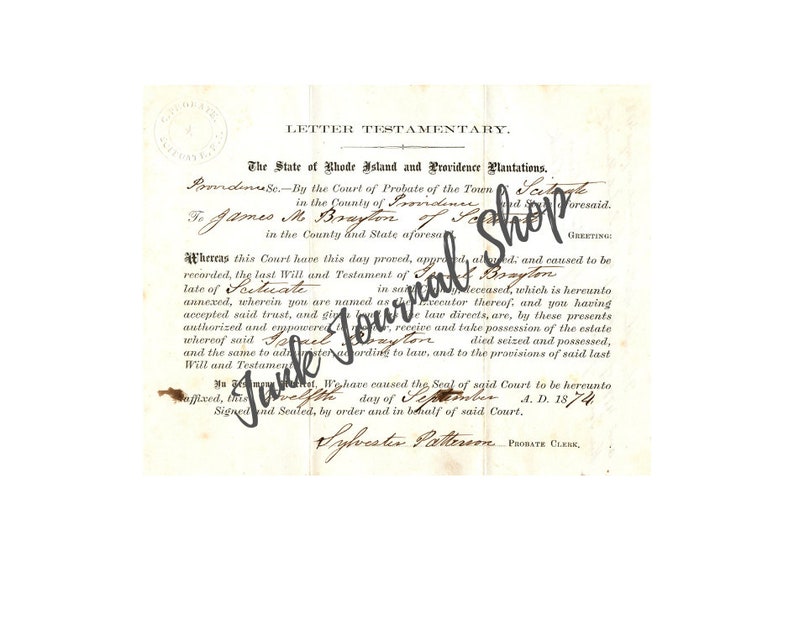 LETTER TESTAMENTARY.
The State of Rhode Island and Providence Plantations.
Providence Sc.—By the Court of Probate of the Town of Scituate
in the County of Providence and State aforesaid.
To James M. Brayton of Scituate
in the County and State aforesaid GREETING:
Whereas this Court have this day proved, approved, allowed, and caused to be
recorded, the last Will and Testament of Israel Brayton
late of Scituate in said County, deceased, which is hereunto
annexed, wherein you are named as the Executor thereof, and you having
accepted said trust, and given bond as the law directs, are, by these presents
authorized and empowered to enter, receive and take possession of the estate
whereof said Israel Brayton died seized and possessed,
and the same to administer according to law, and to the provisions of said last
Will and Testament
In Testimony Whereof, We have caused the Seal of said Court to be hereunto
affixed, this twelfth day of September A. D. 1874.
Signed and Sealed, by order and in behalf of said Court.
Sylvester Patterson PROBATE CLERK.
Junk Journal Shop